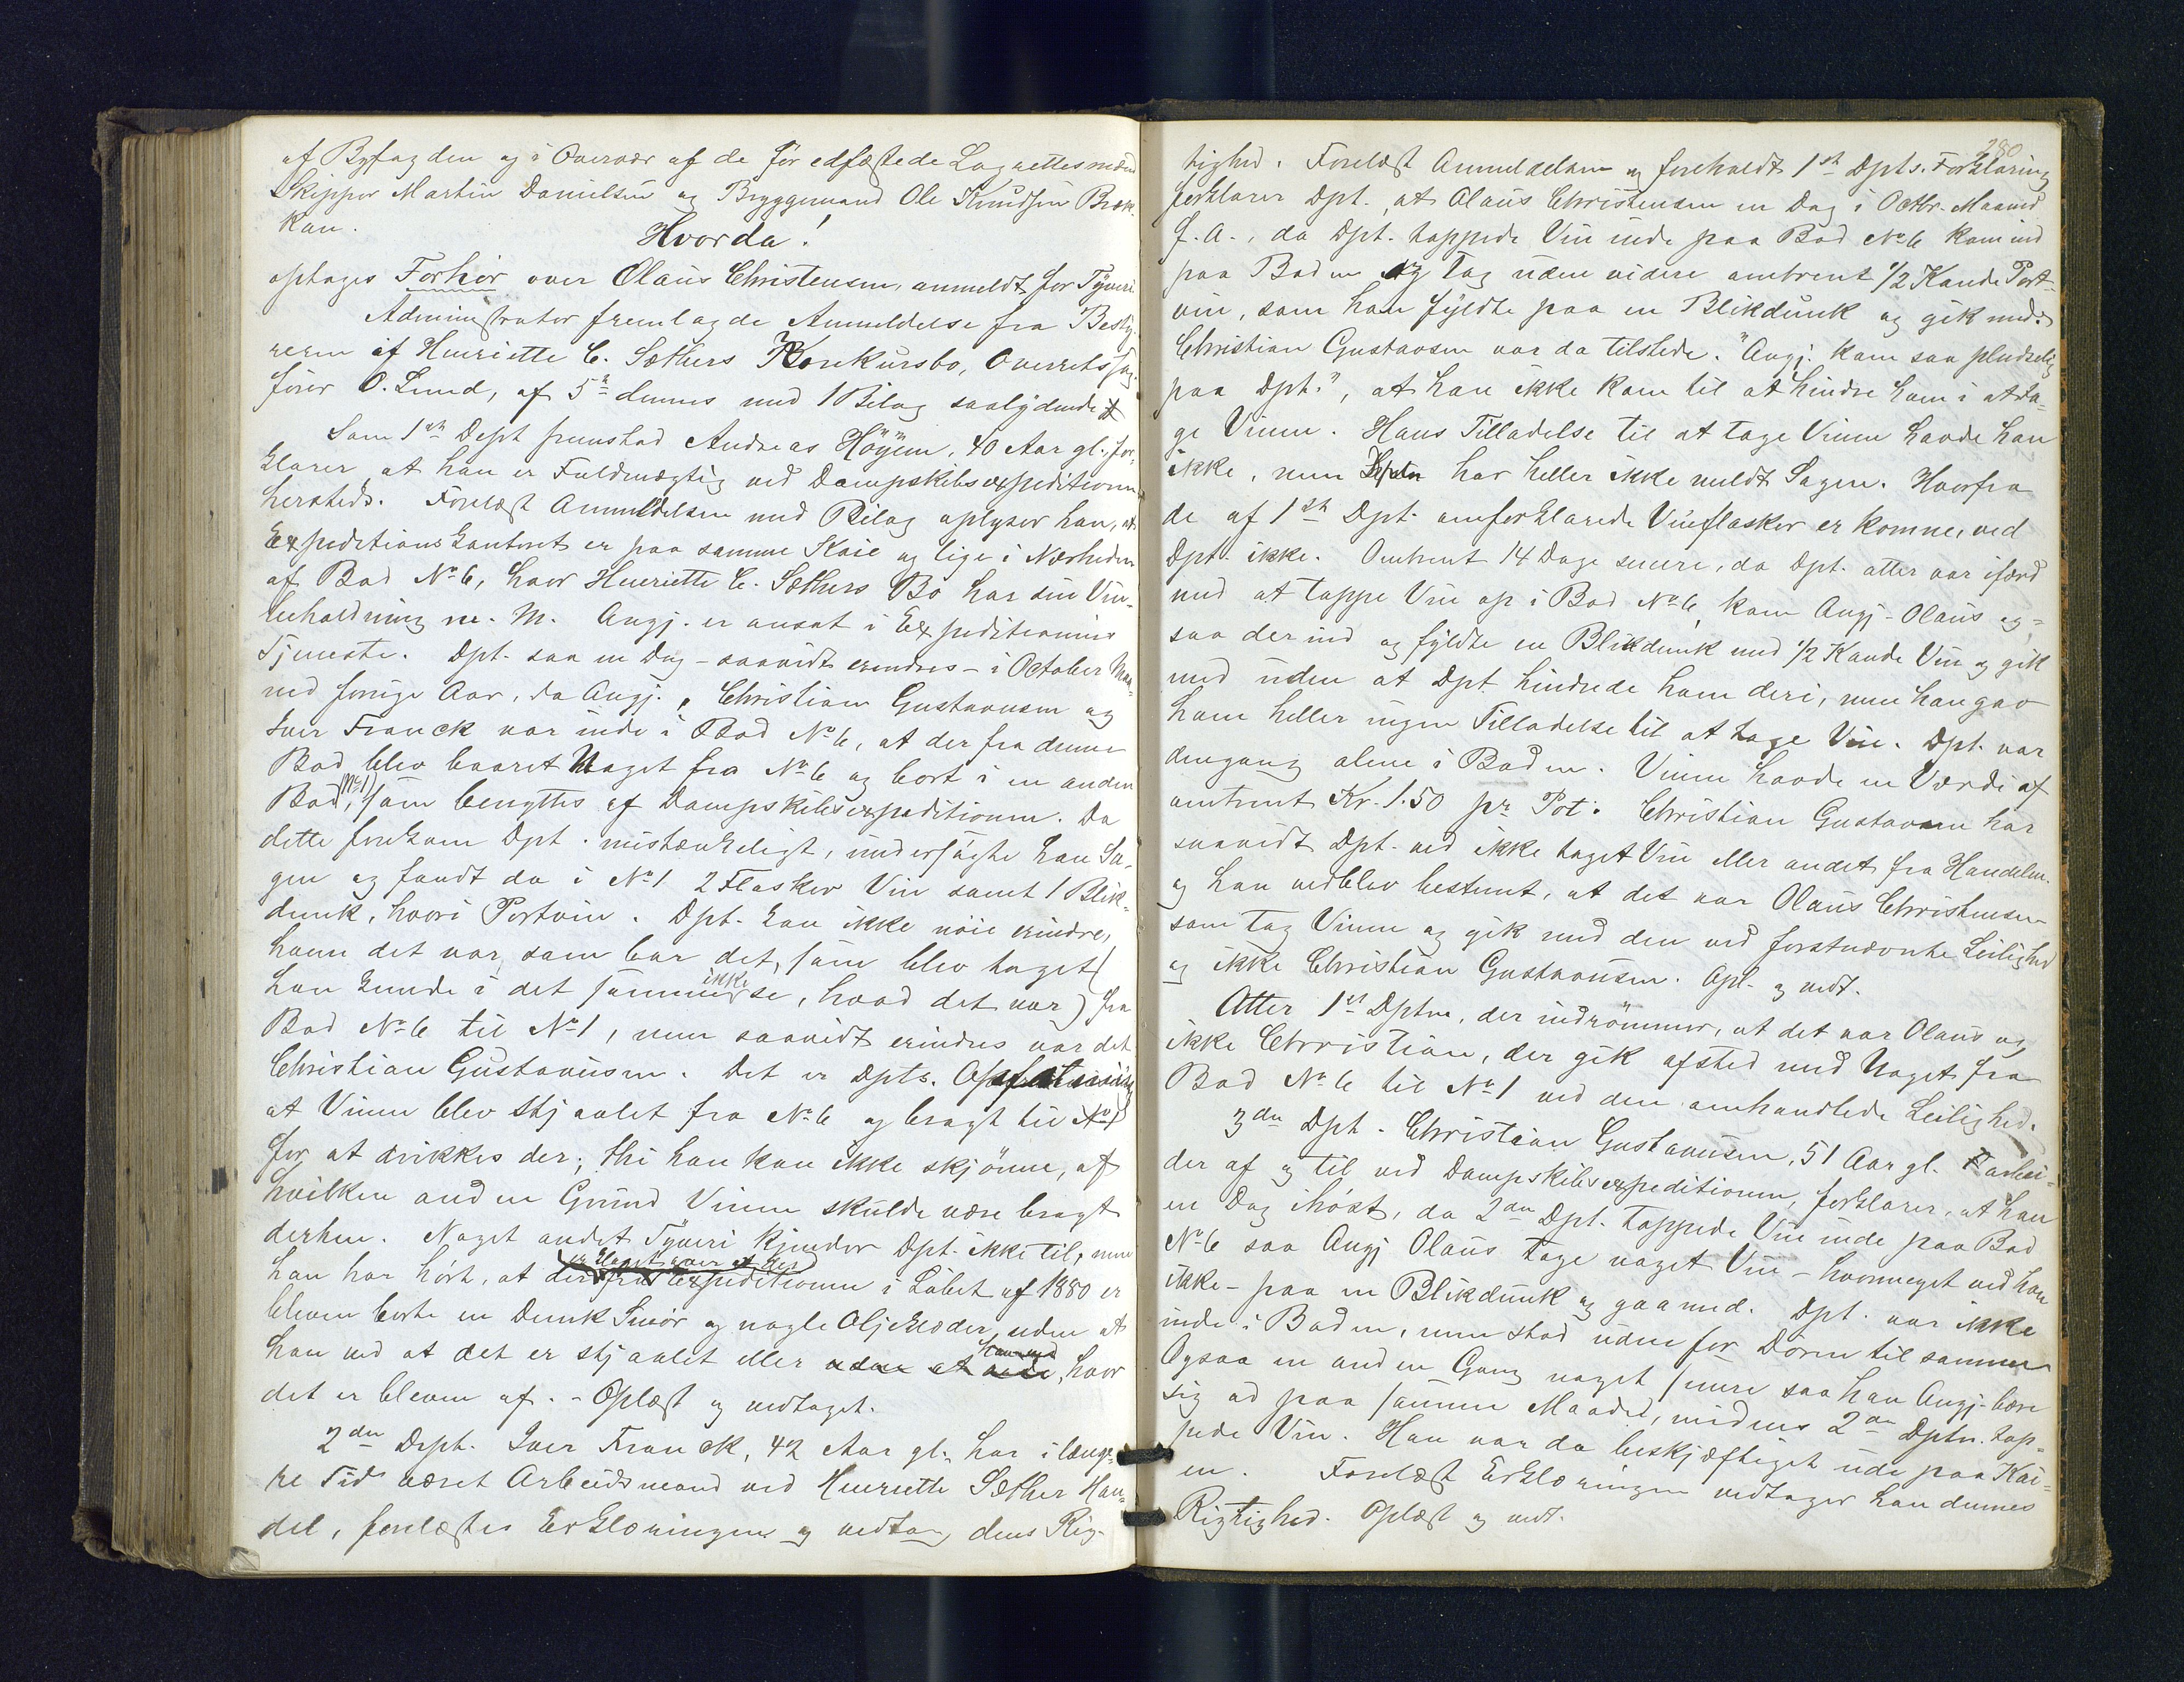 af Byfogden og i Overvær af de før edfæstede Lagrettesmænd
Skipper Martin Danielsen og Bryggemand Ole Knudsen Bræk-
kan.
Hvorda!
optages Forhör over Olaus Christensen, anmeldt for Tyveri
Administrator fremlagde Anmeldelse fra Besty-
reren af Henriette C. Sæthers Konkursbo, Overretssag-
fører O. Lund, af 5te dennes med 1 Bilag saalydende
Som 1ste Dept fremstod Andreas Höyem, 40 Aar gl. for-
klarer at han er Fuldmægtig ved Dampskibsexpeditionen
hersteds. Forelæst Anmeldelsen med Bilag oplyser han, at
Expeditionskontoret er paa samme Kaie og lige i Nærheden
af Bod No 6, hvor Henriette C. Sæthers Bo har sin Vin-
beholdning m. M. Angj. er ansat i Expeditionens
Tjeneste. Dpt. saa en Dag - saavidt erindres - i October Maa-
ned forrige Aar, da Angj., Christian Gustavusen og
Iver Franck var inde i Bod No 6, at der fra denne
Bod blev baaret Noget fra No 6 og bort i en anden
Bod, (No 1) som benyttes af Dampskibsexpeditionen. Da
dette forekom Dpt. mistænkeligt, undersögte han Sa-
gen og fandt da i No 1 2 Flasker Vin samt 1 Blik-
dunk, hvori Portvin. Dpt. kan ikke nöie erindre,
hvem det var, som bar det, som blev taget (
han kunde i det ikke se, hvad det var) fra
Bod No 6 til No 1, men saavidt erindres var det
Christian Gustavusen. Det er Dpts. Opfatning
at Vinen blev stjaalet fra No 6 og bragt til No 1
for at drikkes der; thi han kan ikke skjönne, af
hvilken anden Grund Vinen skulde være bragt
derhen. Noget andet Tyveri kjender Dpt. ikke til, men
han har hört, at der fra Expeditionen i Löbet af 1880 er
bleven borte en Dunk Smör og nogle Oljeklæder, uden at
han ved at det er stjaalet eller uden at vide, hvor
det er bleven af. - Oplæst og vedtaget.
2den Dept. Iver Franck, 42 Aar gl. har i længe-
re Tid været Arbeidsmand ved Henriette Sæther Han-
del, forelæstes Erklæringen og vedtog dens Rig-
280
tighed. Forelæst Anmeldelsen og foreholdt 1ste Dpts. Forklaring
forklarer Dpt., at Olaus Christensen en Dag i Octbr. Maaned
f. A., da Dpt. tappede Vin inde paa Bod No 6 kom ind
paa Boden og tog uden videre omtrent 1/2 Kande Port-
vin, som han fyldte paa en Blikdunk og gik med.
Christian Gustavsen var da tilstede. "Angj. kom saa pludselig
paa Dpt.", at han ikke kom til at hindre ham i at ta-
ge Vinen. Hans Tilladelse til at tage Vinen havde han
ikke, men Dpten har heller ikke meldt Sagen. Hvorfra
de af 1ste Dpt. omforklarede Vinflasker er komne, ved
Dpt. ikke. Omtrent 14 Dage senere, da Dpt. atter var ifærd
med at tappe Vin op i Bod No 6, kom Angj. Olaus og-
saa derind og fyldte en Blikdunk med 1/2 Kande Vin og gik
med uden at Dpt hindrede ham deri, men han gav
ham heller ingen Tilladelse til at tage Vin. Dpt. var
dengang alene i Boden. Vinen havde en Værdi af
omtrent Kr. 1.50 pr Pot. Christian Gustavsen har
saavidt Dpt. ved ikke taget Vin eller andet fra Handelen.
og han vedblev bestemt, at det var Olaus Christensen
som tog Vinen og gik med den ved forstnævnte Leilighed
og ikke Christian Gustavusen. Opl. og vedt.
Atter 1ste Dptn, der indrömmer, at det var Olaus og
ikke Christian, der gik afsted med Noget fra
Bod No 6 til No 1 ved den omhandlede Leilighed.
3die Dpt. Christian Gustavusen, 51 Aar gl. arbei-
der af og til ved Dampskibsexpeditionen, forklarer, at han
en Dag ihöst, da 2den Dpt. tappede Vin inde paa Bod
No 6 saa Angj Olaus tage noget Vin - hvormeget ved han
ikke - paa en Blikdunk og gaa med. Dpt. var ikke
inde i Boden, men stod uden for Dören til samme
Ogsaa en anden Gang noget senere saa han Angj. bære
sig ad paa samme Maade, medens 2den Dptn. tap-
pede Vin. Han var da beskjæftiget ude paa Kai-
en. Forelæst Erklæringen vedtager han dennes
Rigtighed. Oplæst og vedt.